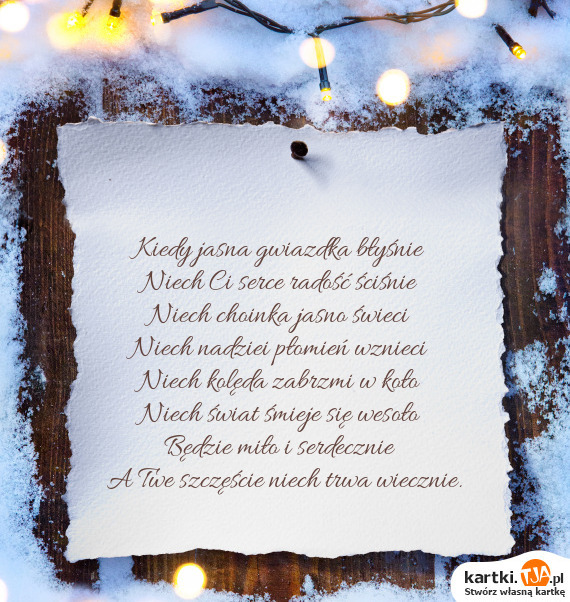 Kiedy jasna gwiazdka błyśnie
Niech Ci serce radość ściśnie
Niech choinka jasno świeci
Niech nadziei płomień wznieci
Niech kolęda zabrzmi w koło
Niech świat śmieje się wesoło
Będzie miło i serdecznie
A Twe szczęście niech trwa wiecznie.
kartki.TJA.pl
Stwórz własną kartkę